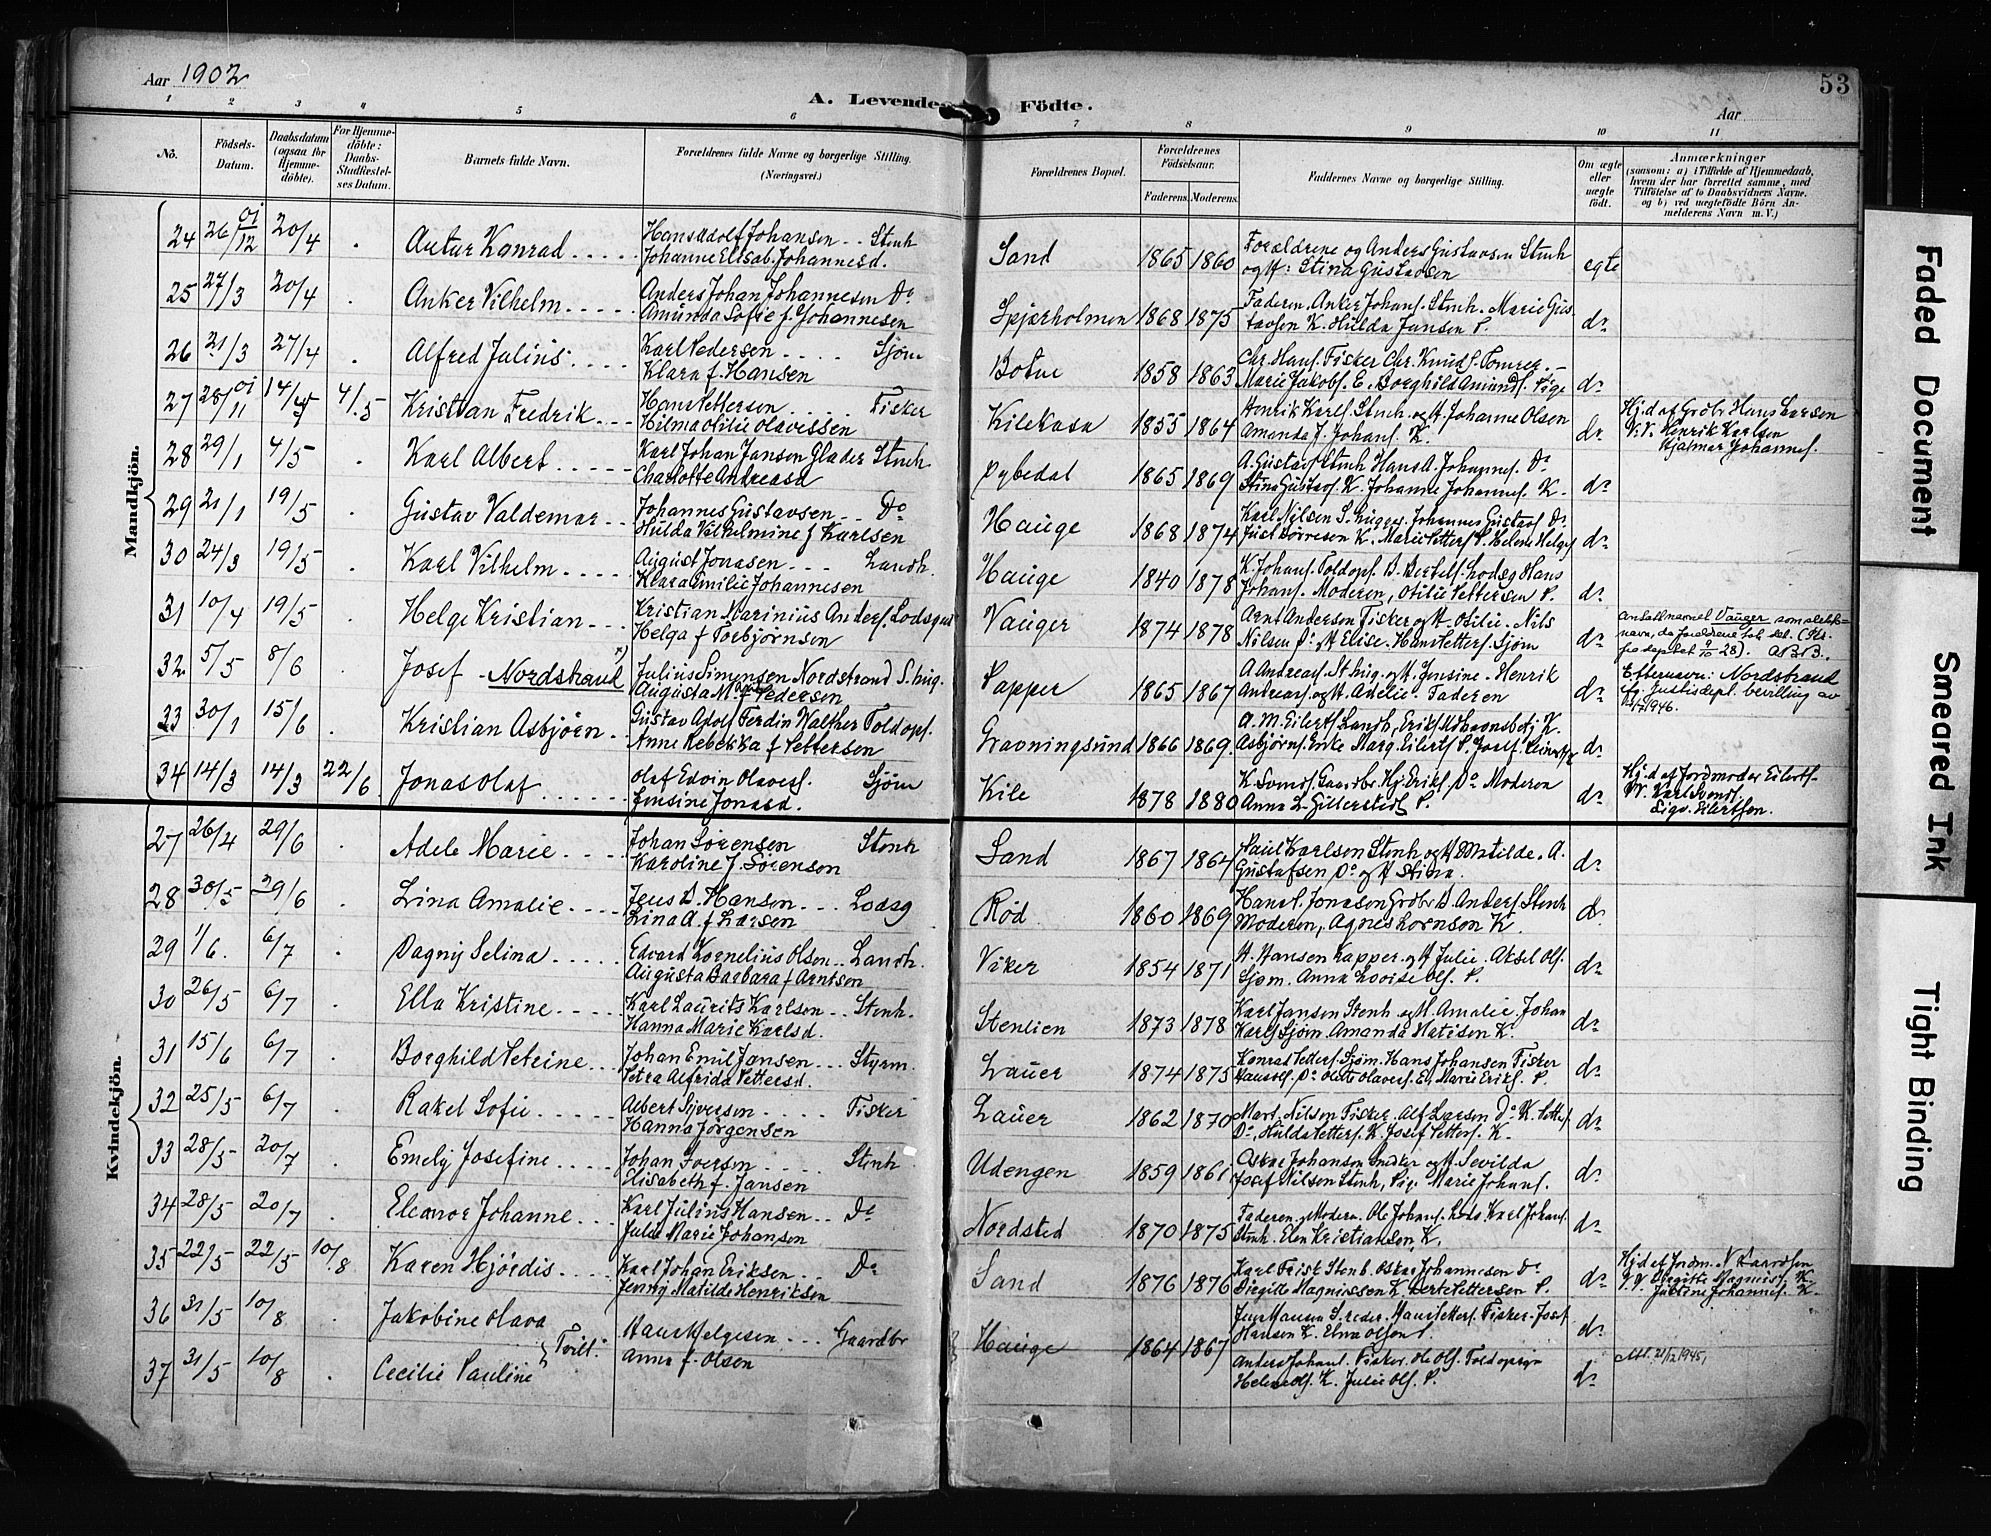 Aar 1902
53
A. Levende Födte.
Aar
1 2 3 4 5 6 7 8 9 10 11
No. Födsels-Datum. Daabsdatum (ogsaa for Hjemme-döbte). For Hjemme-döbte: Daabs-Stadfæstel-ses Datum. Barnets fulde Navn. Forældrenes fulde Navne og borgerlige Stilling. (Næringsvei.) Forældrenes Bopæl. Forældrenes Födselsaar. Faderens. Moderens. Faddernes Navne og borgerlige Stilling. Om ægte eller uægte födt. Anmærkninger (saasom: a) i Tilfælde af Hjemmedaab, hvem der har forrettet samme, med Tilföielse af to Daabsvidners Navne. og b) ved uegtefödte Börn An-melderens Navn m. V.)
Mandkjön.
24 26/12 01 20/4 Konrad Hans Adolf Johansen Stenh Sand 1865 1860 Forældrene og Anders Gustavsen Stenh egte
Johanne Elisab. Johannesd. og H: Stina Gustavsen
25 27/3 20/4 Anker Vilhelm Anders Johan Johannesen Do Spjærholmen 1868 1875 Faderen. Anker Johans. Stenh. Marie Gus- do
Amunda Sofie f. Johannesen tavsen K. Hulda Jansen P.
26 21/3 27/4 Alfred Julius Karl Pedersen Sjøm Botne 1858 1863 Chr. Hans. Fisker Chr. Knuds. Tømrer. do
Klara f. Hansen Marie Jakobs. E. Borghild Amunds. Pige
27 28/11 01 4/5 Kristian Fredrik Hans Pettersen Fisker Kilekasa 1855 1864 Henrik Karls. Stenh. og H. Johanne Olsen do Hj.d af Grbr. Hans Larsen
Hilma Otilie Olavesen Amanda J. Johans. K. V.V. Henrik Karlsen
Hjalmar Johannes.
28 29/1 4/5 Karl Albert Karl Johan Jansen Glader Stenh Dybedal 1865 1869 A. Gustavs. Stenh. Hans A. Johannes. Do do
Charlotte Andreasd Stina Gustavs. K. Johanne Johannes. K.
29 21/1 19/5 Gustav Valdemar Johannes Gustavsen Do Hauge 1868 1874 Karl Nilsen S. hugger. Johannes Gustavs. Do do
Hulda Vilhelmine f Karlsen K. Marie Petters. P. Helene Helges
30 24/3 19/5 Karl Vilhelm August Jonasen Landh. Hauge 1840 1878 K. Johans. Toldops. B. Bertels. Lodsg Hans do
Klara Emilie Johannesen Johans. Moderen, Otilie Pettersen P.
31 10/4 19/5 Helge Kristian Kristian Marinius Anders. Lodsgut Vauger 1874 1878 Arnt Andersen Fisker og H. Otilie. Nils do Vauger som slekts-
Helga f Torbjørnsen Nilsen Do H Elise. Hans Petters. Sjøm navn, da foreldrene tok det.
32 5/5 8/6 Josef Nordstrand Julius Simensen Nordstrand S. hug. Papper 1865 1867 A Andreas. St. hug. og H. Jensine. Henrik do Efternavn: Nordstrand
Augusta M. f Pedersen Andreas. og H. Adelie. Faderen flg. Justisdept. bevilling av 1946.
33 30/1 15/6 Kristian Asbjørn Gustav Adolf Ferdin Walther Toldops. Gravningsund 1866 1869 A. M. Eilerts. Landh, K. do
Anne Rebekka f Pettersen Asbjørns. Enke Marg. Eilerts P. Josef.
34 14/3 14/3 22/6 Jonas Olaf Olaf Edvin Olaves. Sjøm Kile 1878 1880 K. Svends. Gaardbr. Hj. Eriks. Do Moderen do Hj.d af Jordmoder Eilerts.
Jensine Jonasd. Anna L. Gillerstedt P. VV. Karl Svends.
Sigv. Eilertsen.
Kvindekjön.
27 26/4 29/6 Adele Marie Johan Sørensen Stenh Sand 1867 1864 Paul Karlsen Stenh og H Matilde. A. do
Karoline f. Sørensen Gustafsen Do og H Stina.
28 30/5 29/6 Lina Amalie Jens B. Hansen Lodsg Rød 1860 1869 Hans l. Jonasen Grbr B. Anders. Stenh do
Lina A. f Larsen Moderen, Agnes K.
29 1/6. 6/7 Dagny Selina Edvard Kornelius Olsen Landh. Viker 1854 1871 H. Hansen Kapper og H Julie. Aksel Ols. do
Augusta Barbara f Arntsen Sjøm. Anna Lovise Ols. P.
30 26/5 6/7 Ella Kristine Karl Laurits Karlsen Stenh. Stenlien 1873 1878 Karl Jansen Stenh og H. Amalie. Johan do
Hanna Marie Karlsd. Karls Sjøm. Amanda Matisen K.
31 15/6 6/7 Borghild Petrine Johan Emil Jansen Styrm. Lauer 1874 1875 Konrad Petters. Sjøm. Hans Johansen Fisker do
Petra Alfrida Pettersd. Do Olaves. E, Marie Eriks. P.
32 25/5 6/7 Rakel Sofie Albert Syversen Fisker Lauer 1862 1870 Mart. Nilsen Fisker. Alf Larsen Do K. Petters. do
Hanna Jørgensen Do, Hulda Petters. K. Josef Petters. K.
33 28/5 20/7 Emely Josefine Johan Iversen Stenh. Udengen 1859 1861 Oskar Johansen Snedker og H Sevilda do
Elisabeth f. Jansen Josef Nilsen Stenh, Pige Marie Johans.
34 28/5 20/7 Eleanor Johanne Karl Julius Hansen Do Nordsted 1870 1875 Faderen, Modern. Ole Johans. Lods Karl Johans. do
Julie Marie Johansen Stenh. Elen Kristiansen, K.
35 22/5 22/5 10/8 Karen Hjördis Karl Johan Eriksen Do Sand 1876 1876 Karl Frisk Stenh. Oskar Johannesen Do do Hj.d af Jordm. N
Jenny Matilde Henriksen Birgitte Magnussen K. Berte Pettersen P. V.V. Birgitte Magnuss. K.
Justine Johannes. K.
36 31/5 10/8 Jakobine Olava Hans Helgesen Gaardbr Hauge 1864 1867 Jens Hansen Hans Petters. Fisker. Josef do
Tvill: Anna f. Olsen Hansen K. Elma Olsen P.
37 31/5 10/8 Cecilie Pauline Anders Johans. Fisker. Ole Ols. Toldopsyn do Att. 21/12 1945,
Helene Ols. K. Julie Ols. P.
Faded Document
Smeared Ink
Tight Binding